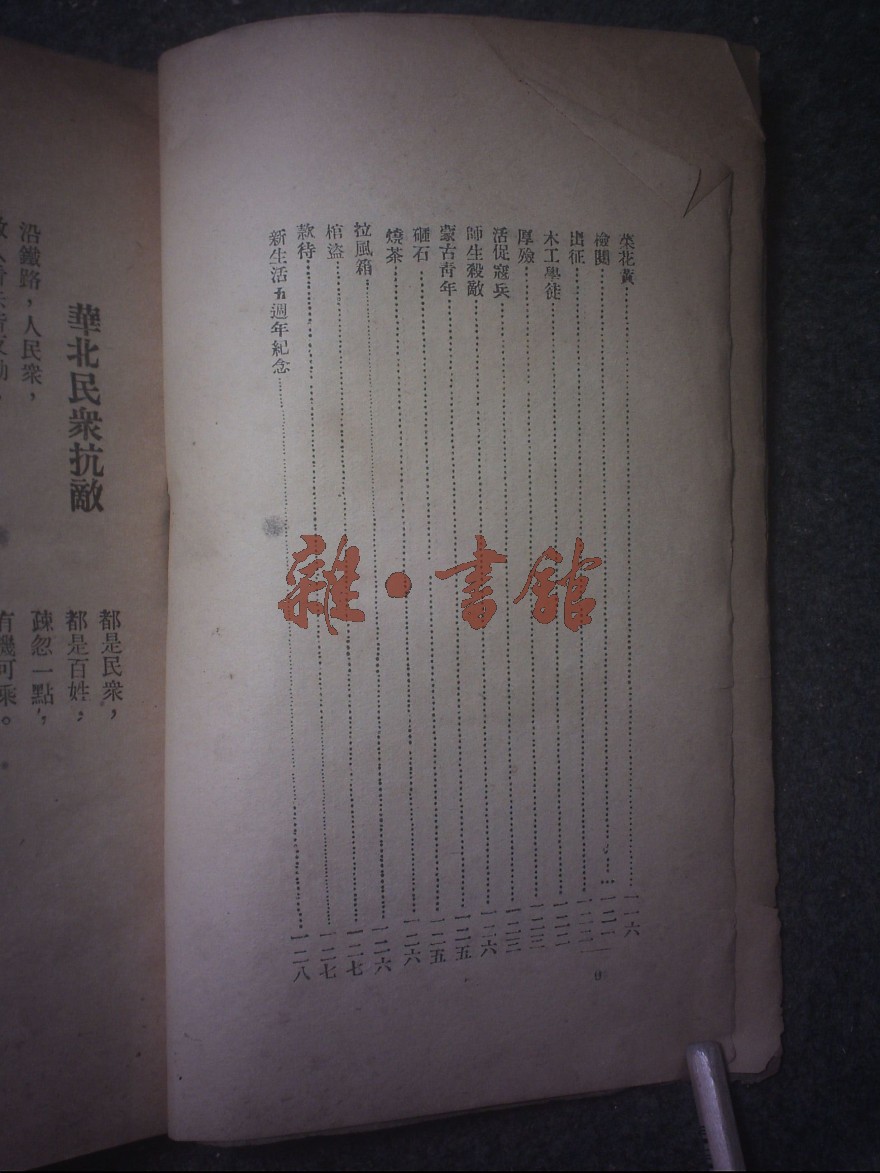 菜花黃……一一六
檢閱……一二一
出征……一二二
木工學徒……一二二
厚殮……一二三
活促寇兵……一二三
師生殺敵……一二六
蒙古青年……一二五
砸石……一二五
燒茶……一二六
拉風箱……一二六
棺盜……一二七
款待……一二七
新生活五週年紀念……一二八
華北民衆抗敵
都是民衆，
都是百姓；
疎忽一點，
有機可乘。
沿鐵路，人民衆，
雜·書館